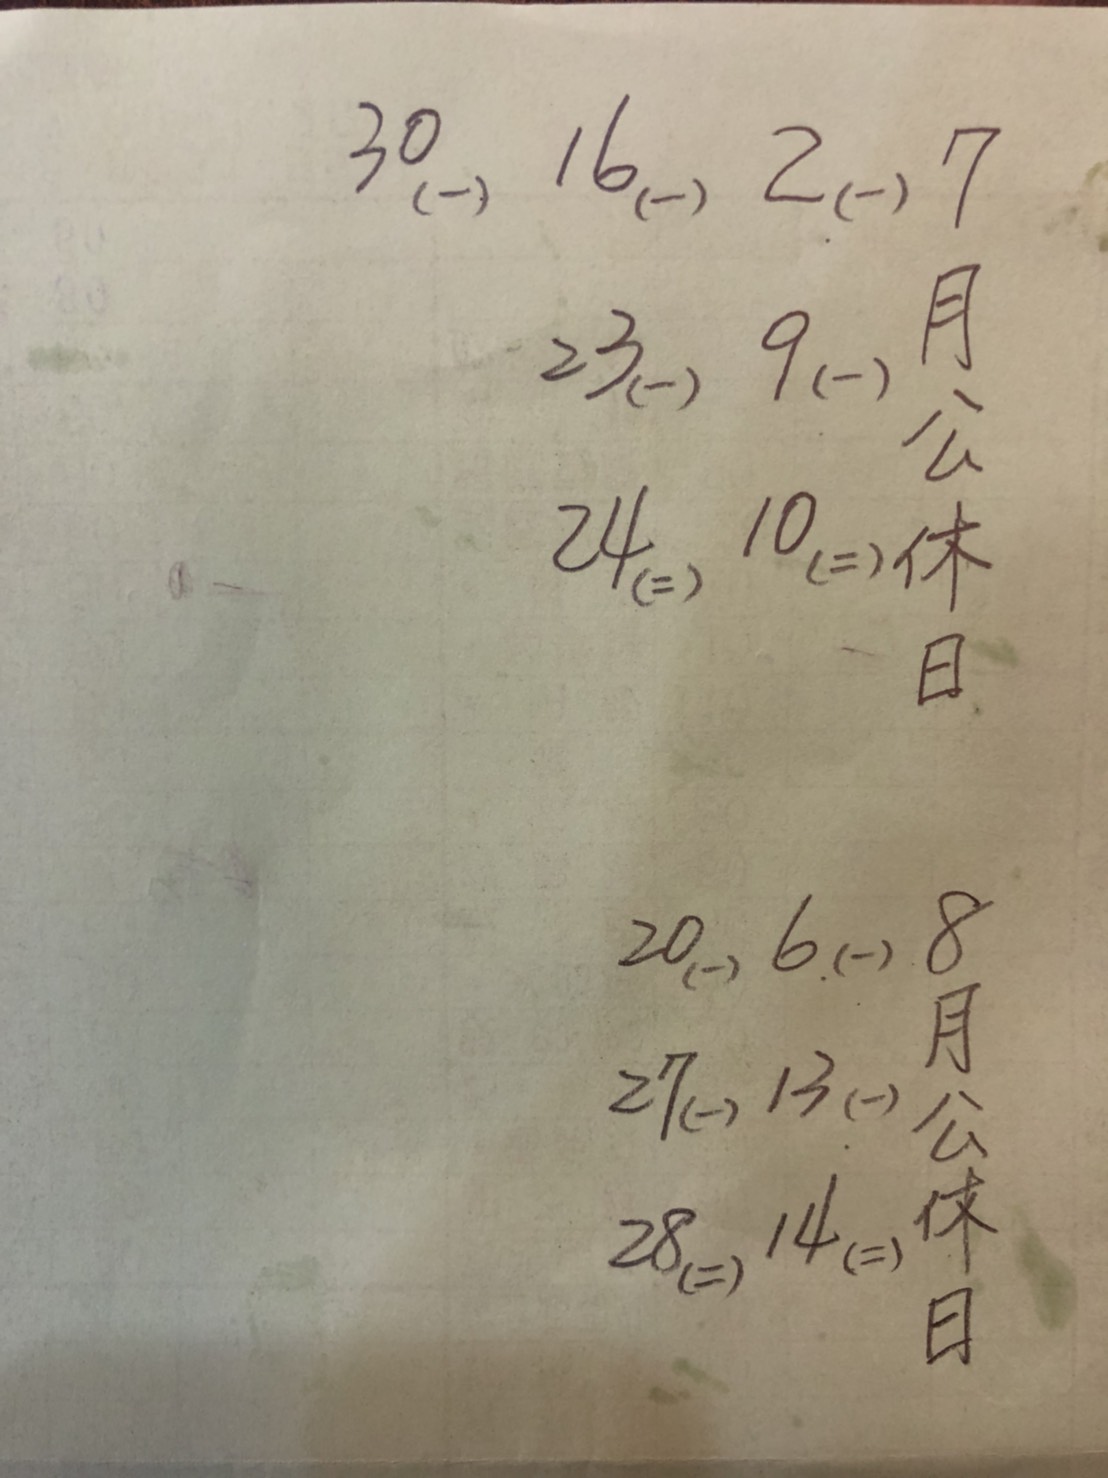 7月公休日
2(一)
9(一)
10(二)
16(一)
23(一)
24(二)
30(一)
8月公休日
6(一)
13(一)
14(二)
20(一)
27(一)
28(二)